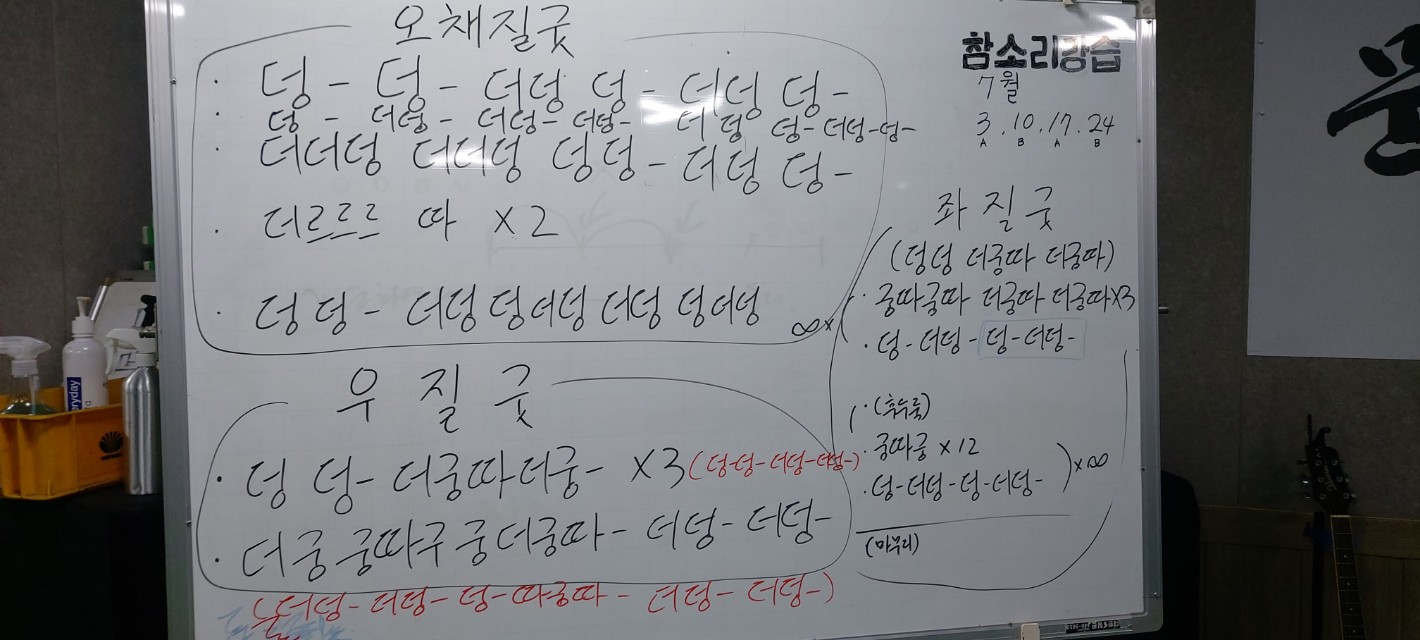 오채질굿
· 덩 - 덩 - 더덩 덩 - 더덩 덩 -
· 덩 - 더덩 - 더덩 - 더덩 - 더 덩 덩 - 더덩 - 덩 -
· 더더덩 더더덩 덩덩 - 더덩 덩 -
· 더르르르 따 X2
· 덩 덩 - 더덩 덩 더덩 더덩 덩 더덩
∞x
우 질 굿
· 덩 덩 - 더궁따더궁 - X3 (덩덩 - 더덩 - 더덩 -)
· 더궁궁따구궁더궁따 - 더덩 - 더덩 -
(더덩 - 더덩 - 덩 - 따궁따 - 더덩 - 더덩 -)
참소리강습
7월
3 . 10 . 17 . 24
A B A B
좌 질 굿
(덩덩 더궁따 더궁따)
· 궁따궁따 더궁따 더궁따 X3
· 덩 - 더덩 - 덩 - 더덩 -
· (후누룩)
· 궁따궁 X12
· 덩 - 더덩 - 덩 - 더덩 -
x∞
(마무리)